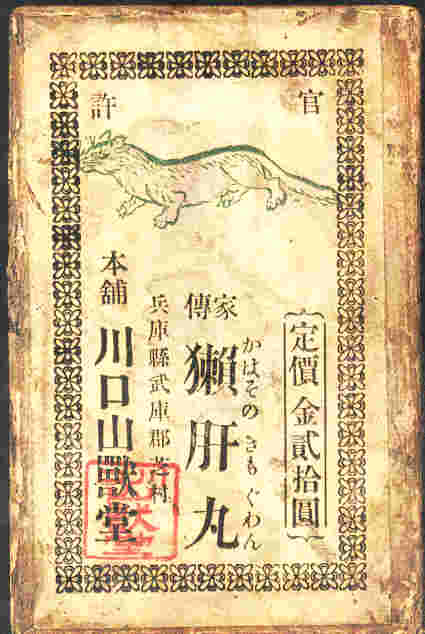 官許
定價金貳拾圓
かはそのきもぐわん
家傳
獺肝丸
兵庫縣武庫郡 村
本舖
川口山獸堂